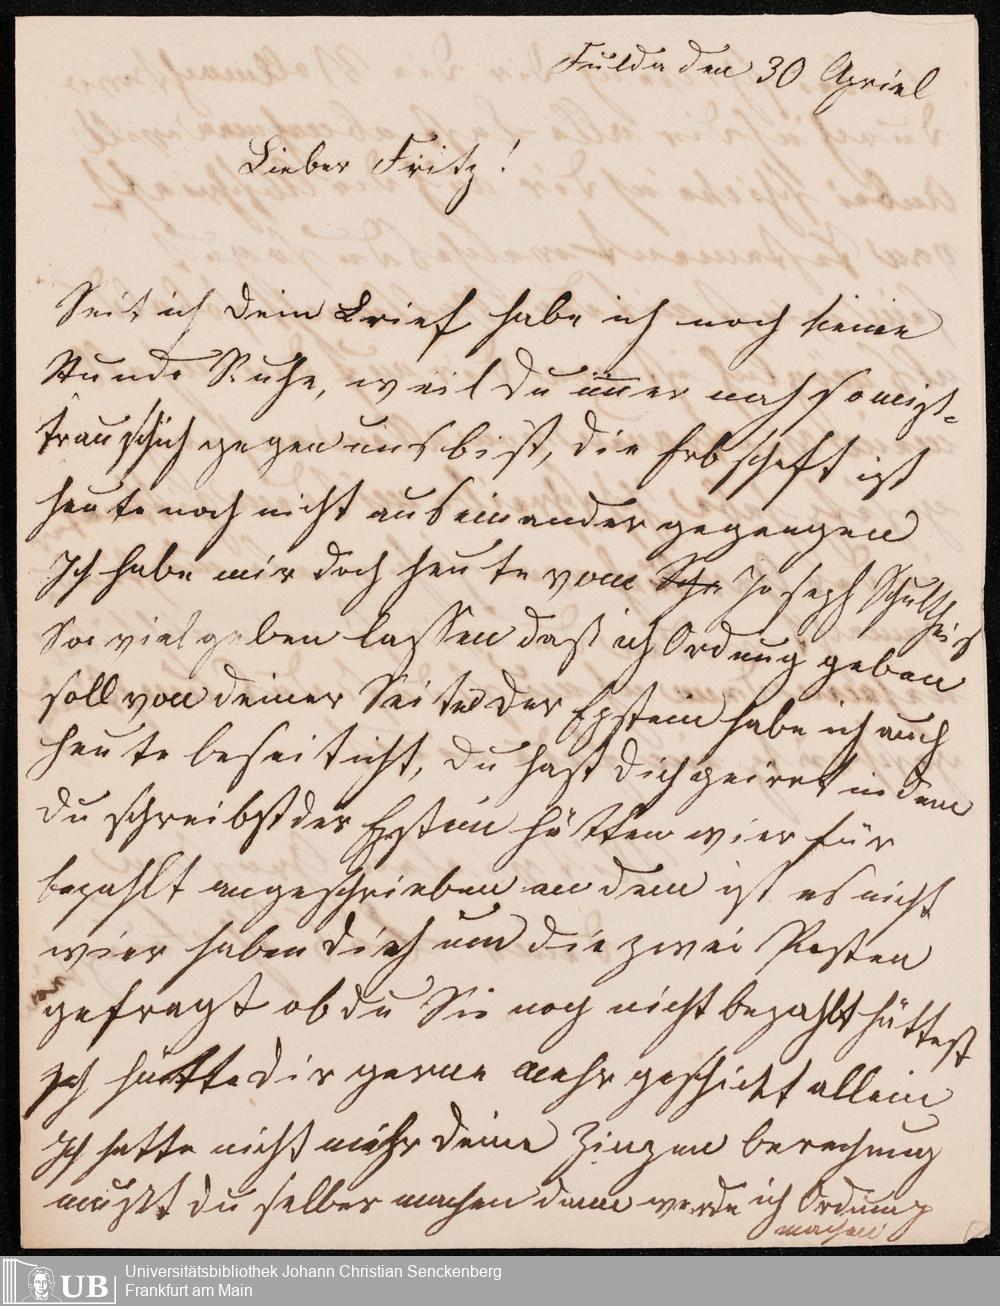 Fulda den 30 Apriel
Lieber Fritz!
Seit ich dein Brief habe ich noch keine
Stunde Ruhe, weil du immer noch so misz-
trauschich gegen uns bist, die Erbschaft ist
heute noch nicht auseinander gegangen
Ich habe mir doch heute vom Joseph Schultheis
So viel geben lassen dasz ich Ordnug geben
soll von deiner Seite der Epstein habe ich auch
heute beseiticht, du hast dich geiret in dem
du schreibst der Epstein hätten wier für
bezahlt angeschrieben an dem ist es nicht
wier haben dich um die zwei Posten
gefragt ob du Sie noch nicht bezahlt hättest
Ich hätte dir gerne mehr geschickt allein
Ich hatte nicht mehr deine Zinzen berechnung
muszt du selber machen dann werde ich Ordnung
machen
UB
Universitätsbibliothek Johann Christian Senckenberg
Frankfurt am Main